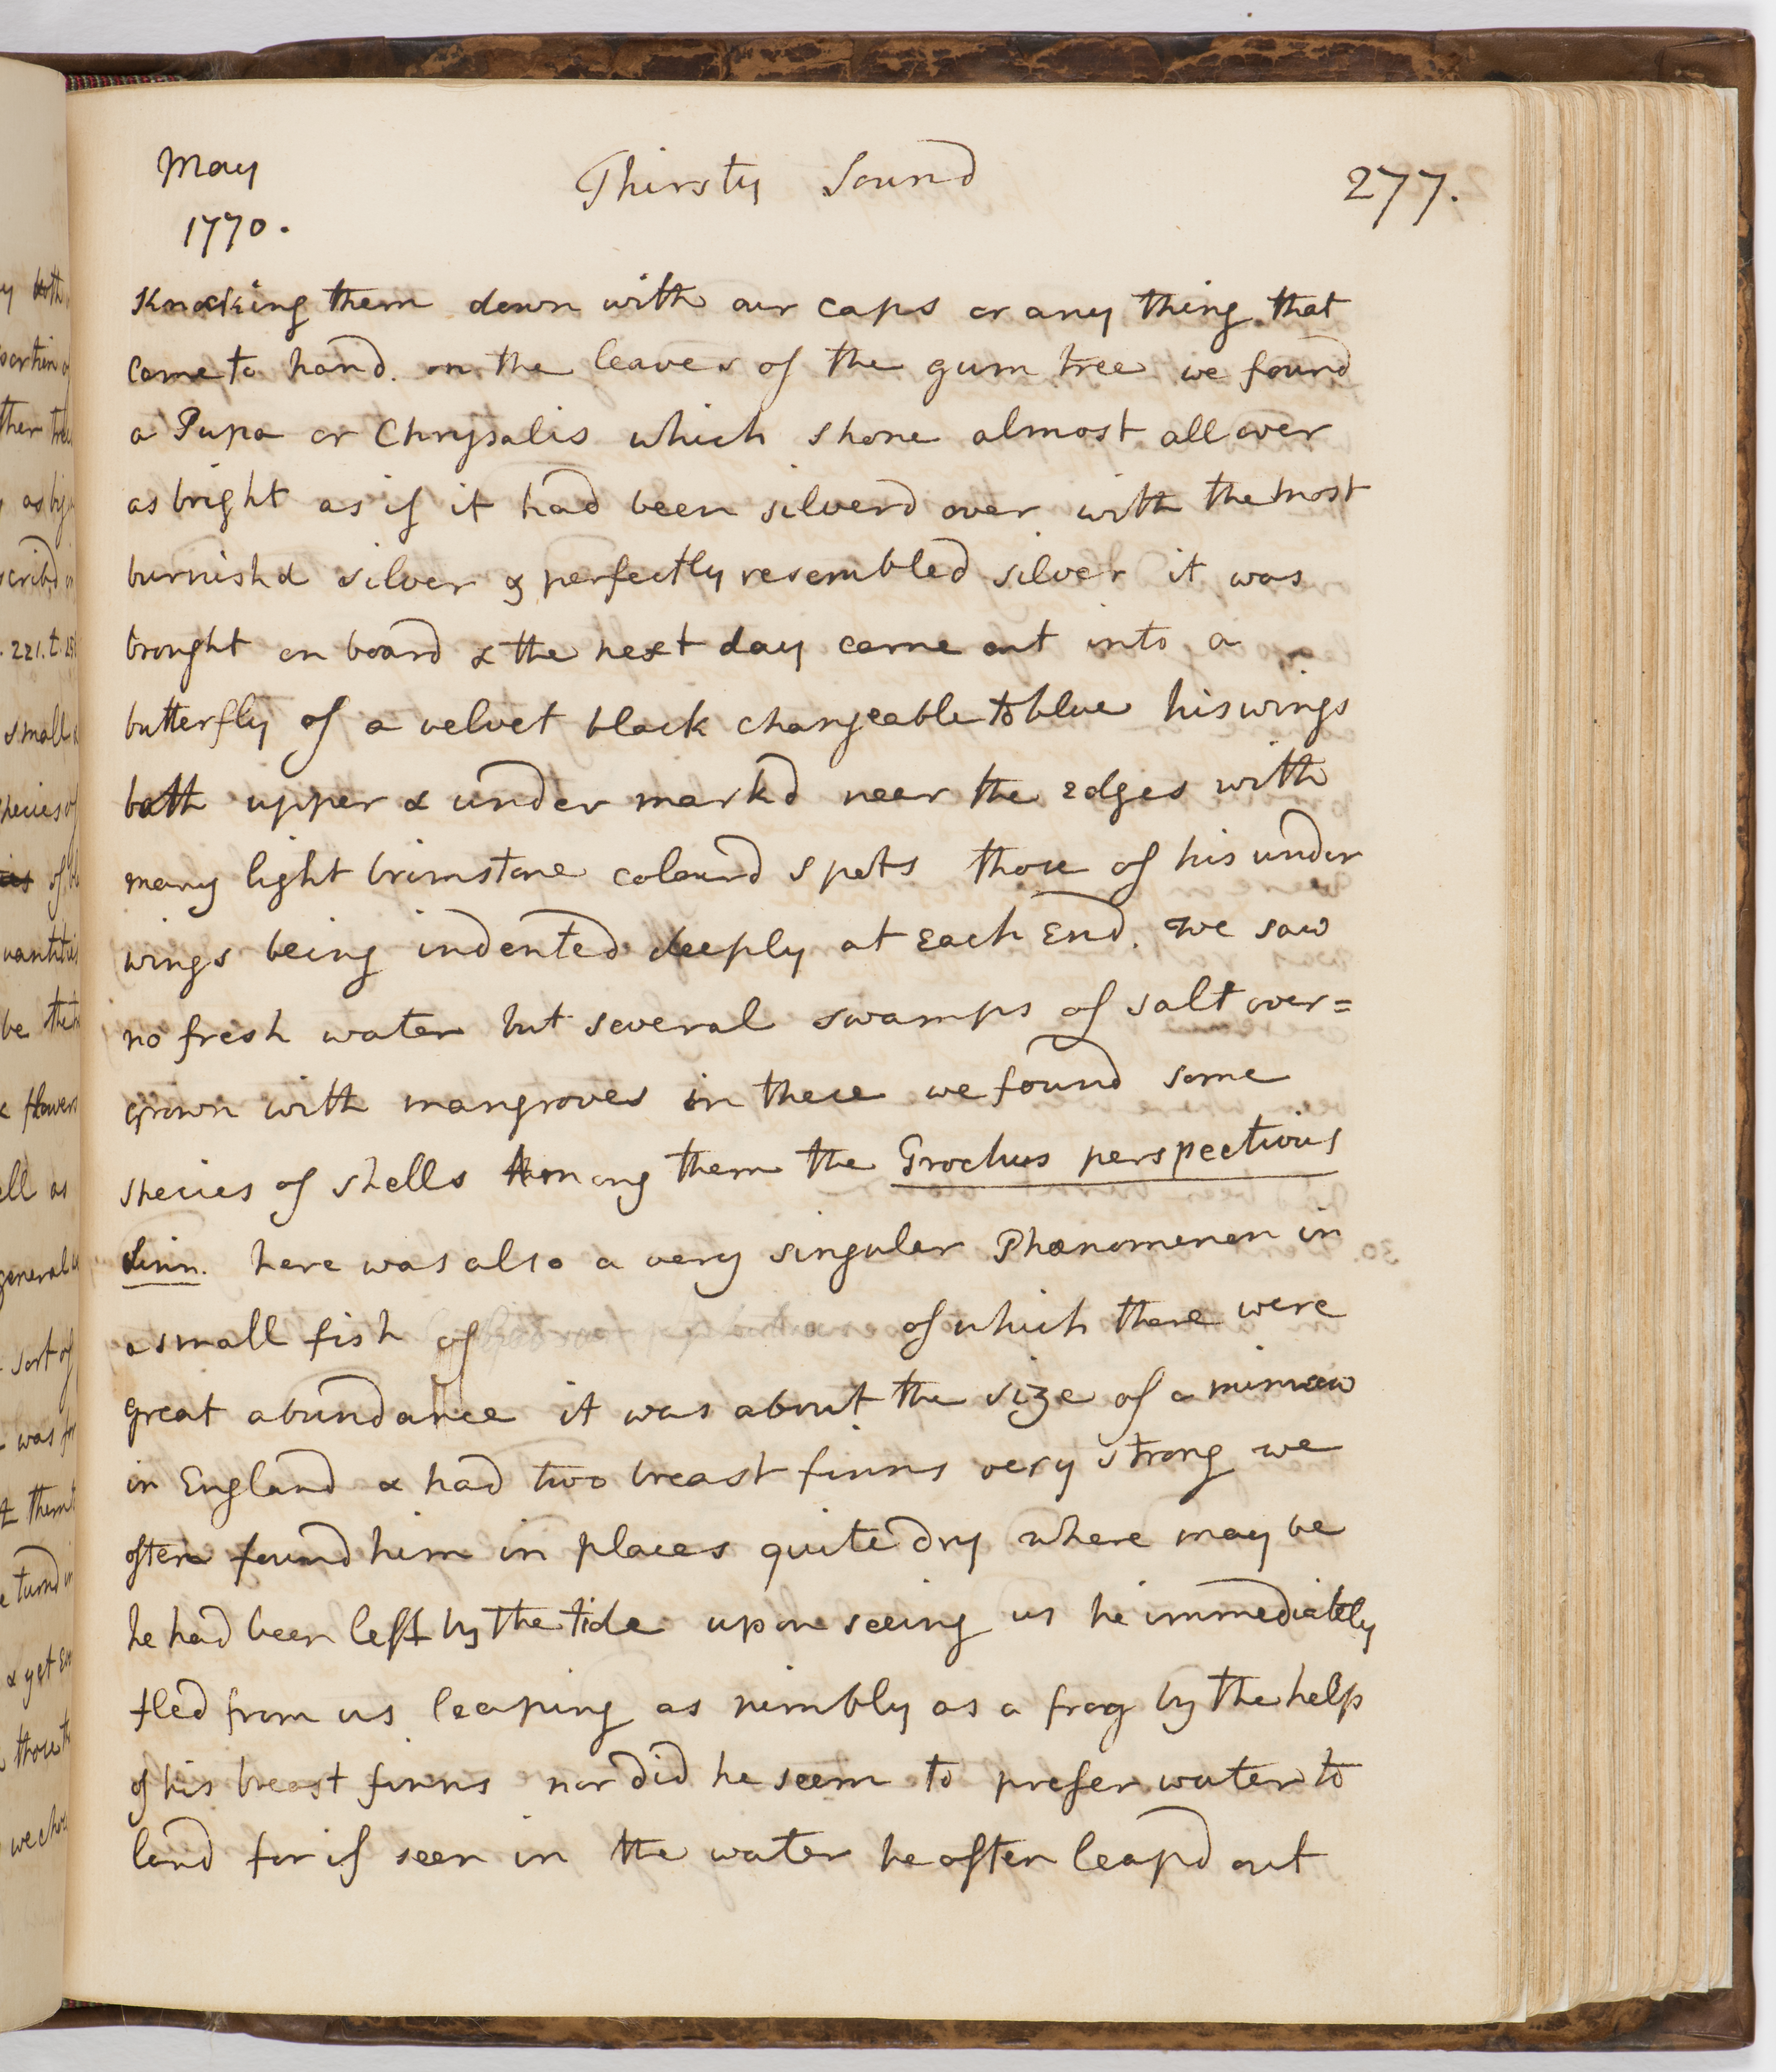 May
1770.
Thirsty Sound
277.
Knocking them down with our caps or any thing that
came to hand. on the leaves of the gum tree we found
a Pupa or Chrysalis which shone almost all over
as bright as if it had been silverd over with the most
burnishd silver & perfectly resembled silver it was
brought on board & the next day came out into a
butterfly of a velvet black changeable to blue his wings
both upper & under markd near the edges with
many light brimstone colourd spots those of his under
wings being indented deeply at Each End. we saw
no fresh water but several swamps of salt over=
grown with mangroves in these we found some
species of shells Among them the Trochus perspectivus
Linn. here was also a very singular Phænomenon in
a small fish of of which there were
great abundance it was about the size of a minnow
in England & had two breast finns very strong we
often found him in places quite dry where may be
he had been left by the tide upon seeing us he immediately
fled from us leaping as nimbly as a frog by the help
of his breast finns nor did he seem to prefer water to
land for if seen in the water he often leapd out